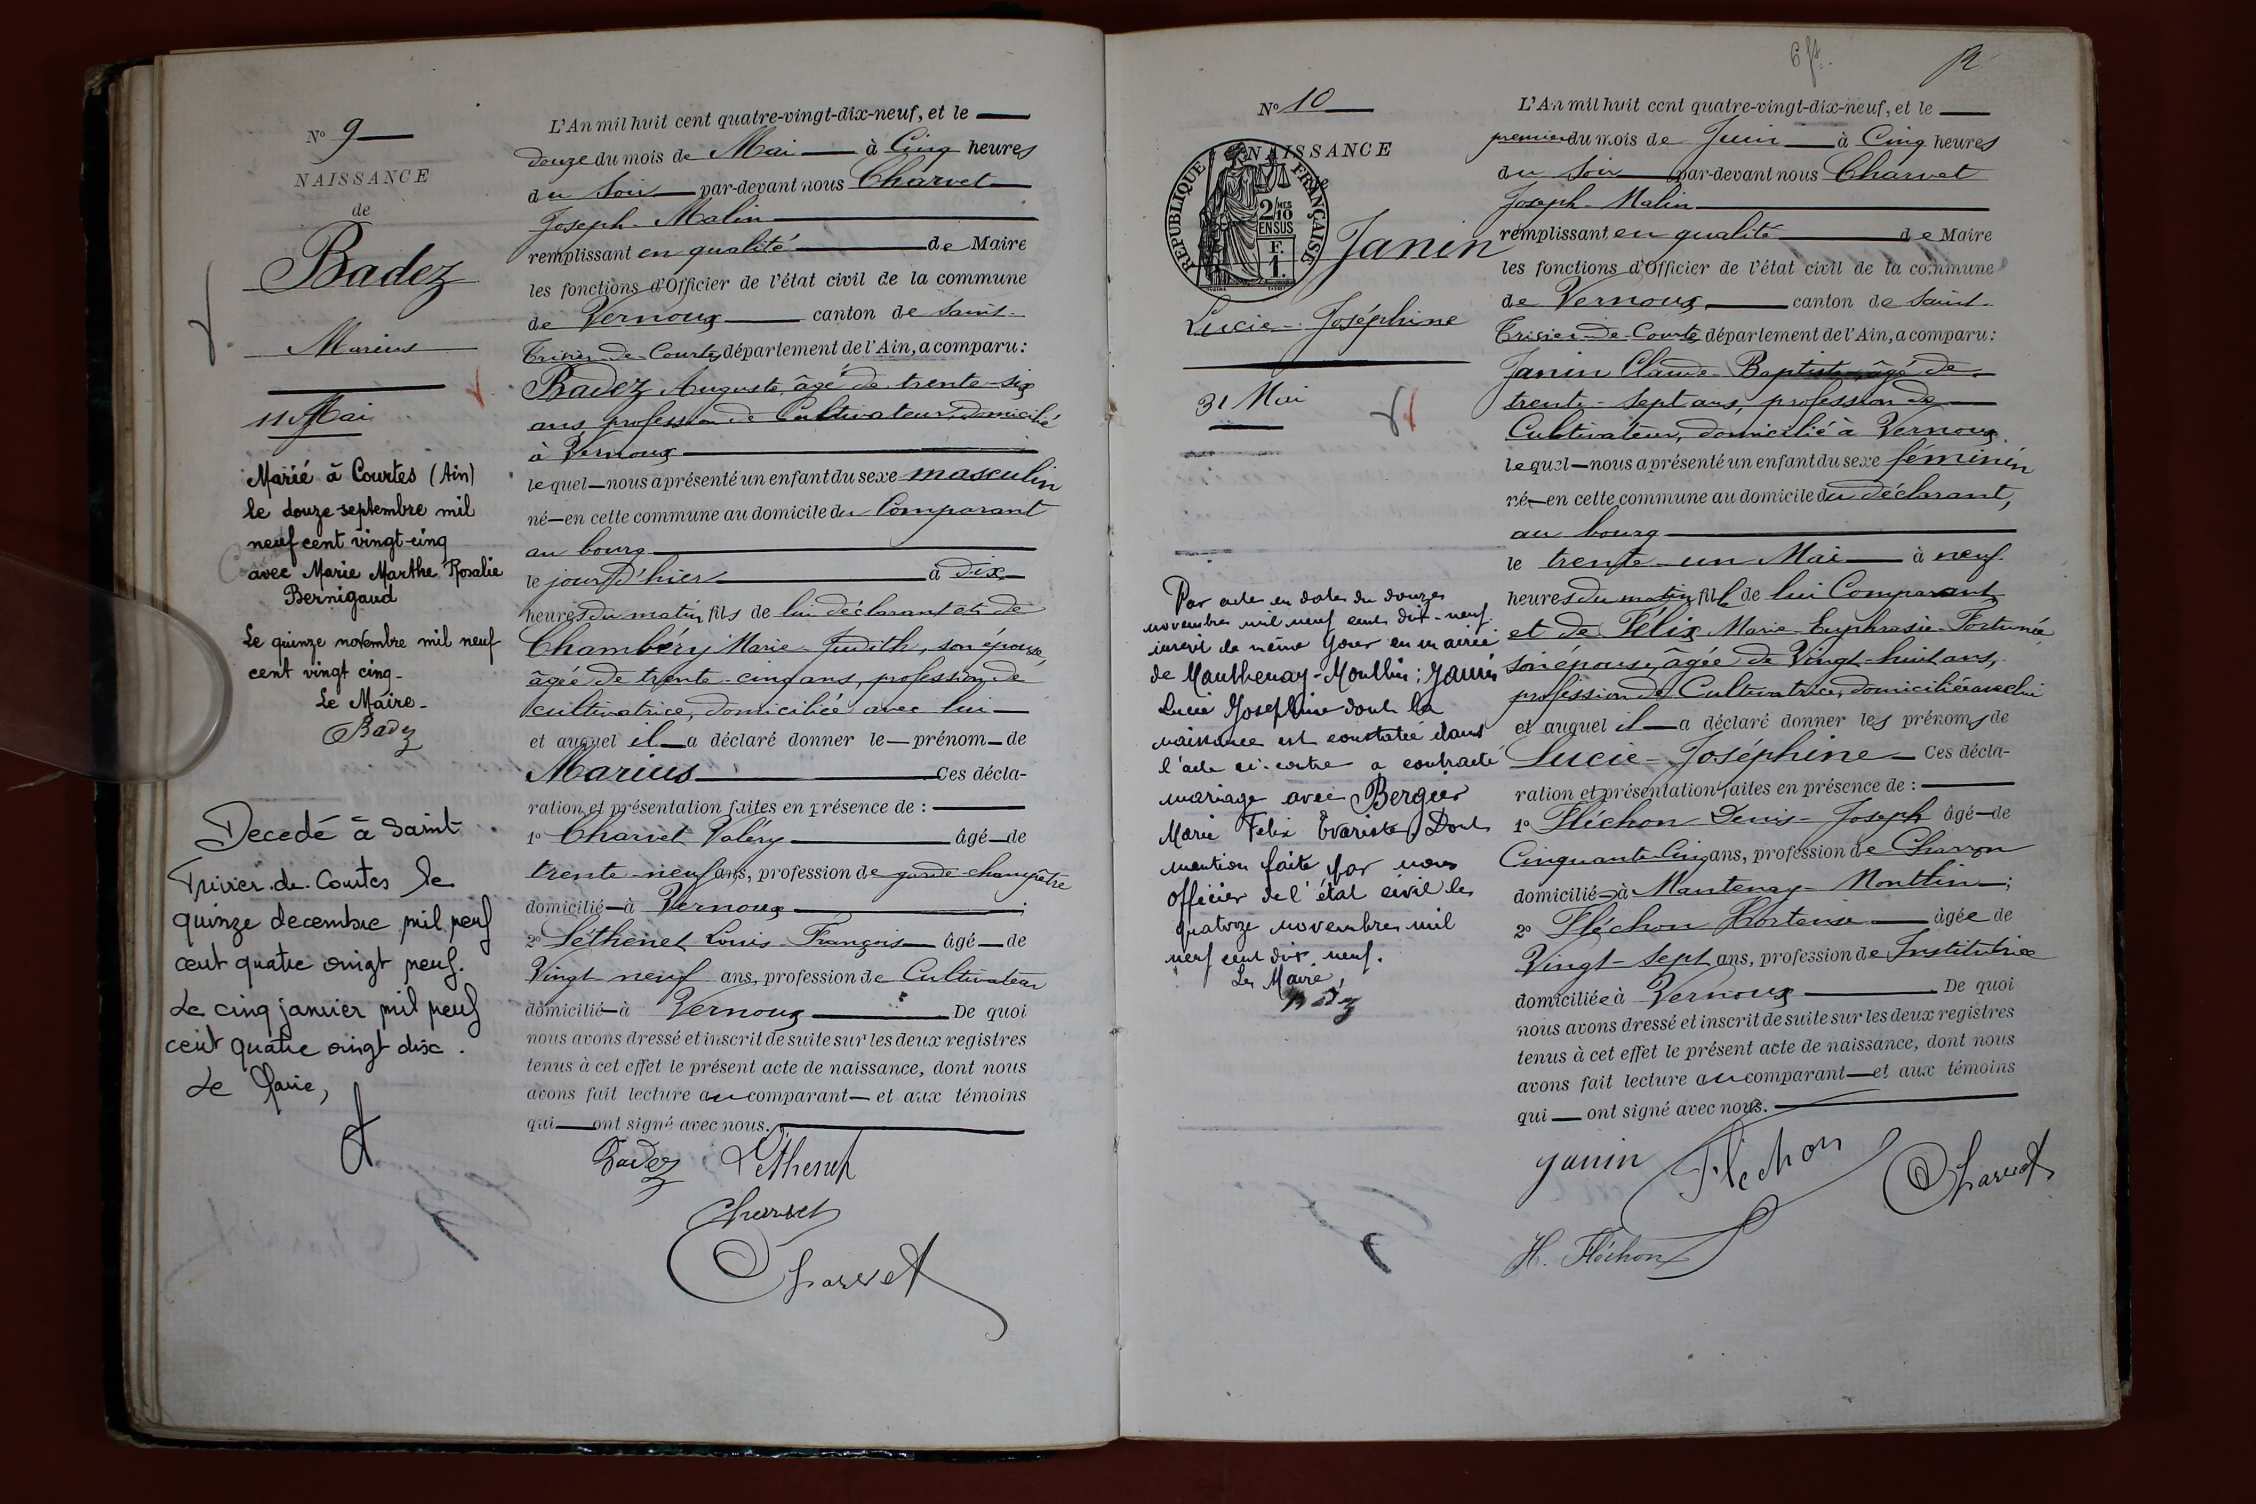 N° 9
NAISSANCE
de
Badez
Marius
11 Mai
Marié à Courtes (Ain)
le douze septembre mil
neuf cent vingt-cinq
avec Marie Marthe Rosalie
Bernigaud
Le quinze novembre mil neuf
cent vingt cinq -
Le Maire -
Badez
Decedé à Saint
Trivier. de. Courtes le
quinze decembre mil neuf
cent quatre vingt neuf.
Le cinq janvier mil neuf
cent quatre vingt dix.
Le Maire,
L'An mil huit cent quatre-vingt-dix-neuf, et le
douze du mois de Mai à Cinq heures
du Soir par-devant nous Charvet
Joseph-Malin
remplissant en qualité de Maire
les fonctions d'Officier de l'état civil de la commune
de Vernoux canton de Saint-
Trivier-de-Courtes département de l'Ain, a comparu:
Badez Auguste, âgé de trente-six
ans, profession de Cultivateur, domicilié
à Vernoux
lequel nous a présenté un enfant du sexe masculin
né en cette commune au domicile du Comparant
au bourg
le jour d'hier à dix
heures du matin, fils de lui déclarant et de
Chambéry Marie-Judith, son épouse,
âgée de trente-cinq ans, profession de
cultivatrice, domiciliée avec lui
et auquel il a déclaré donner le prénom de
Marius Ces décla-
ration et présentation faites en présence de :
1° Charvet Valéry âgé de
trente-neuf ans, profession de garde-champêtre
domicilié à Vernoux ;
2° Léthenet Louis-François âgé de
Vingt neuf ans, profession de Cultivateur
domicilié à Vernoux De quoi
nous avons dressé et inscrit de suite sur les deux registres
tenus à cet effet le présent acte de naissance, dont nous
avons fait lecture au comparant et aux témoins
qui ont signé avec nous.
Badez Léthenet
Charvet
Charvet
N° 10
NAISSANCE
RÉPUBLIQUE FRANÇAISE
2/10 MES
EN SUS
F.
1.
Janin
Lucie-Joséphine
31 Mai
Par acte en date du douze
novembre mil neuf cent dix-neuf
inscrit le même jour en mairie
de Manthenay-Montlin; Janin
Lucie Josephine dont la
naissance est constatée dans
l'acte ci-contre a contracté
mariage avec Bergier
Marie Felix Evariste, Dont
mention faite par nous
officier de l'état civil le
quatorze novembre mil
neuf cent dix-neuf.
Le Maire,
Badez
L'An mil huit cent quatre-vingt-dix-neuf, et le
premier du mois de Juin à Cinq heures
du Soir par-devant nous Charvet
Joseph-Malin
remplissant en qualité de Maire
les fonctions d'Officier de l'état civil de la commune
de Vernoux canton de Saint-
Trivier-de-Courtes département de l'Ain, a comparu:
Janin Claude-Baptiste, âgé de
trente-sept ans, profession de
Cultivateur, domicilié à Vernoux
lequel nous a présenté un enfant du sexe féminin
né en cette commune au domicile du déclarant,
au bourg
le trente-un Mai à neuf
heures du matin, fille de lui Comparant
et de Félix Marie-Euphrasie-Fortunée
son épouse, âgée de Vingt-huit ans,
profession de Cultivatrice, domiciliée avec lui
et auquel il a déclaré donner les prénoms de
Lucie-Joséphine Ces décla-
ration et présentation faites en présence de :
1° Fléchon Denis-Joseph âgé de
Cinquante-Cinq ans, profession de Charron
domicilié à Mantenay-Montlin ;
2° Fléchon Hortense âgée de
Vingt-sept ans, profession de Institutrice
domiciliée à Vernoux De quoi
nous avons dressé et inscrit de suite sur les deux registres
tenus à cet effet le présent acte de naissance, dont nous
avons fait lecture au comparant et aux témoins
qui ont signé avec nous.
Janin Fléchon Charvet
H. Fléchon